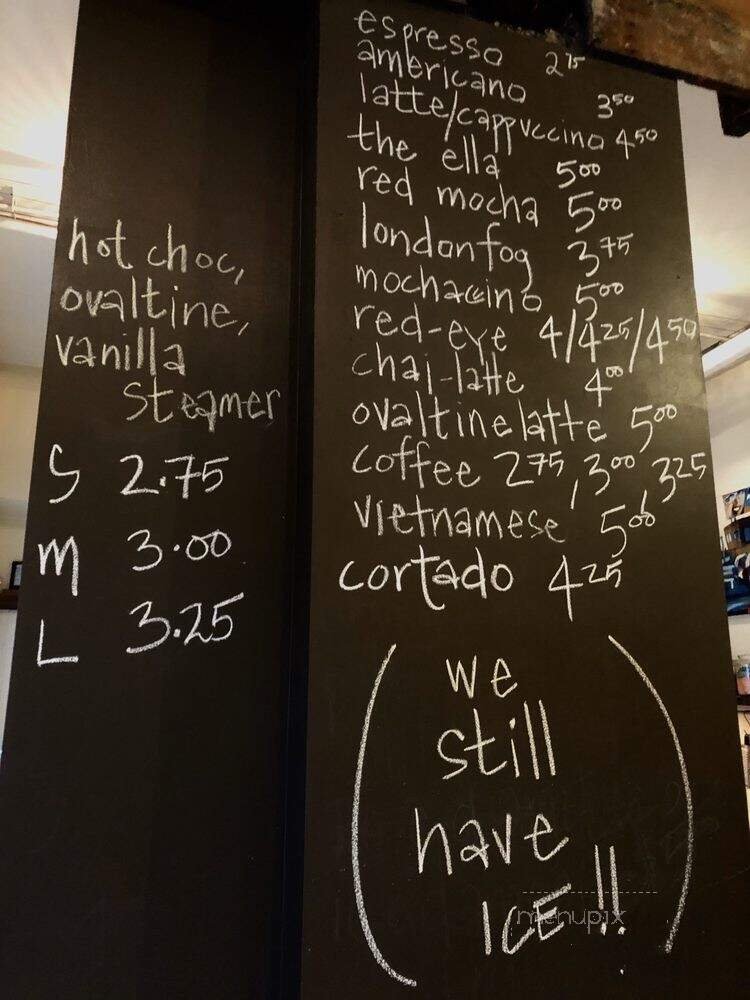 hot choc,
ovaltine,
vanilla
steamer
S 2.75
M 3.00
L 3.25
espresso 2 75
americano 3 50
latte/cappuccino 4 50
the ella 5 00
red mocha 5 00
london fog 3 75
mochaccino 5 00
red-eye 4/4 25/4 50
chai-latte 4 00
ovaltine latte 5 00
coffee 2 75, 3 00, 3 25
vietnamese 5 00
cortado 4 25
(we
still
have
ICE!!)
menupix